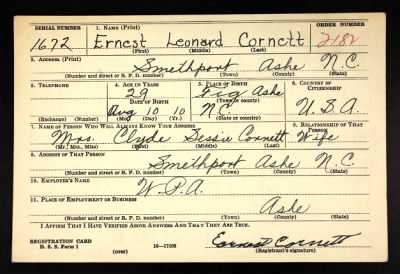 SERIAL NUMBER 1. NAME (Print) ORDER NUMBER
1672 Ernest Leonard Cornett 2182
(First) (Middle) (Last)
2. ADDRESS (Print)
Smethport Ashe N.C.
(Number and street or R. F. D. number) (Town) (County) (State)
3. TELEPHONE 4. AGE IN YEARS 5. PLACE OF BIRTH 6. COUNTRY OF CITIZENSHIP
29 Ashe
DATE OF BIRTH (Town) (County)
Aug 10 10 N.C. U.S.A
(Exchange) (Number) (Mo.) (Day) (Yr.) (State or country)
7. NAME OF PERSON WHO WILL ALWAYS KNOW YOUR ADDRESS 8. RELATIONSHIP OF THAT PERSON
Mrs. Clyde Cornett Wife
(Mr., Mrs., Miss) (First) (Middle) (Last)
9. ADDRESS OF THAT PERSON
Smethport Ashe N.C.
(Number and street or R. F. D. number) (Town) (County) (State)
10. EMPLOYER'S NAME
W.P.A.
11. PLACE OF EMPLOYMENT OR BUSINESS
Ashe
(Number and street or R. F. D. number) (Town) (County) (State)
I AFFIRM THAT I HAVE VERIFIED ABOVE ANSWERS AND THAT THEY ARE TRUE.
REGISTRATION CARD
D. S. S. Form 1 (over) Ernest Cornett
(Registrant's signature)